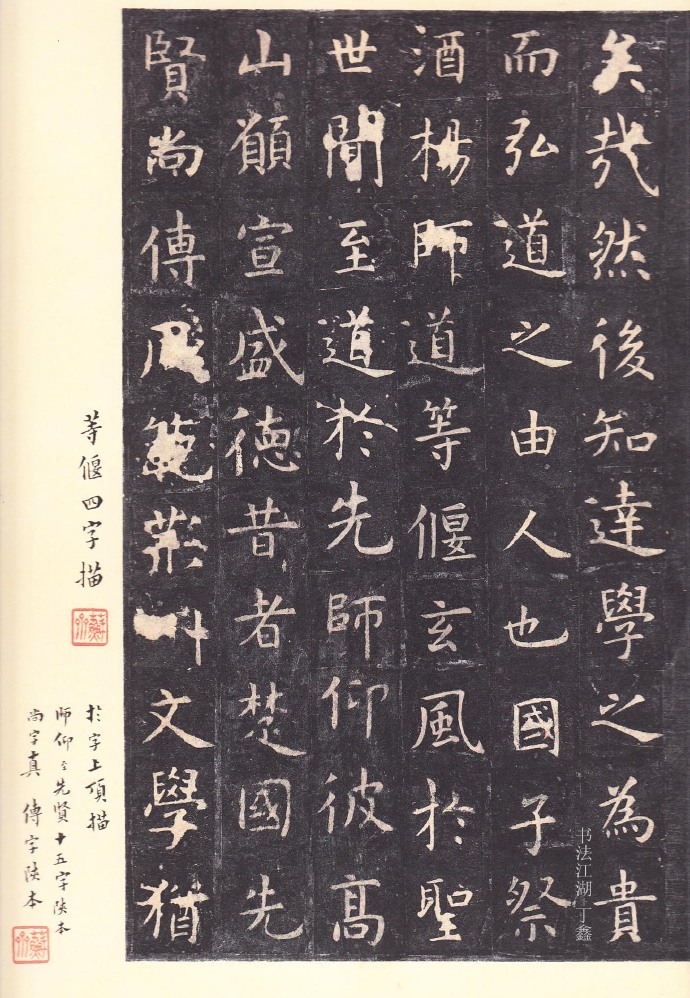 矣哉然後知達學之為貴
而弘道之由人也國子祭
酒楊師道等偃玄風於聖
世聞至道於先師仰彼高
山願宣盛德昔者楚國先
賢尚傳風範荊州文學猶
等偃四字描
於字上頂描
師仰至先賢十五字陝本
尚字真 傳字陝本
书法江湖 丁鑫